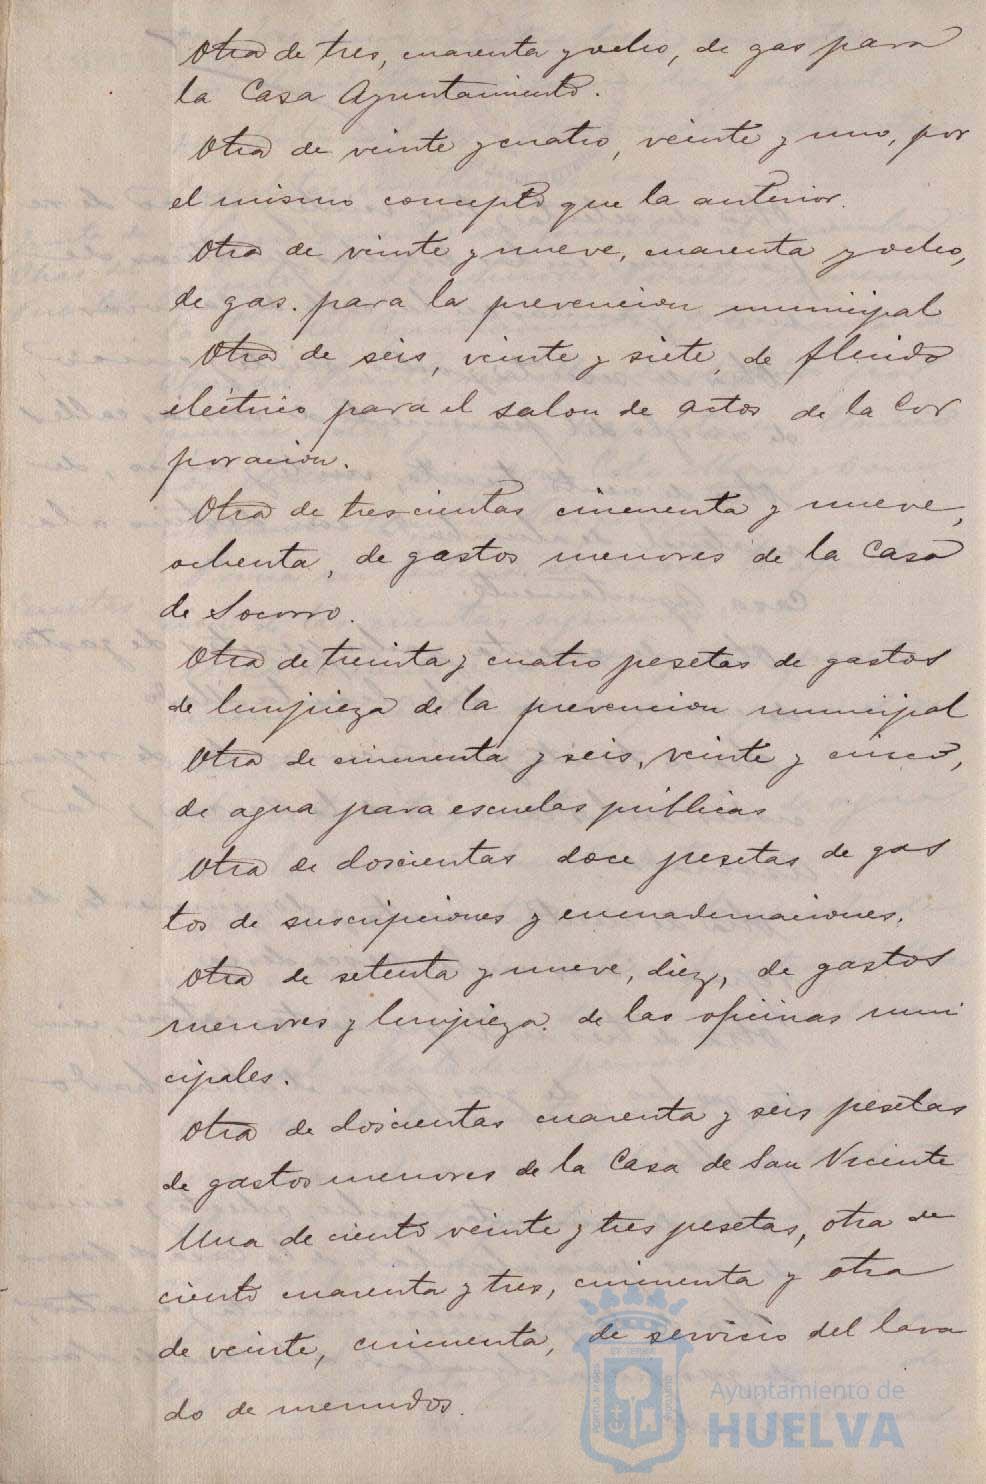 Otra de tres, cuarenta y ocho, de gas para
la Casa Ayuntamiento.
Otra de veinte y cuatro, veinte y uno, por
el mismo concepto que la anterior.
Otra de veinte y nueve, cuarenta y ocho,
de gas. para la prevencion municipal
Otra de seis, veinte y siete, de fluido
eléctrico para el salon de actos de la Cor
poracion.
Otra de trescientas cincuenta y nueve,
ochenta, de gastos menores de la Casa
de Socorro.
Otra de treinta y cuatro pesetas de gastos
de limpieza de la prevencion municipal
Otra de cincuenta y seis, veinte y cinco,
de agua para escuelas públicas
Otra de doscientas doce pesetas de gas
tos de suscripciones y encuadernaciones.
Otra de setenta y nueve, diez, de gastos
menores y limpieza. de las oficinas muni
cipales.
Otra de doscientas cuarenta y seis pesetas
de gastos menores de la Casa de San Vicente
Una de ciento veinte y tres pesetas, otra de
ciento cuarenta y tres, cincuenta y otra
de veinte, cincuenta, de servicio del lava
do de menudos.
Ayuntamiento de
HUELVA